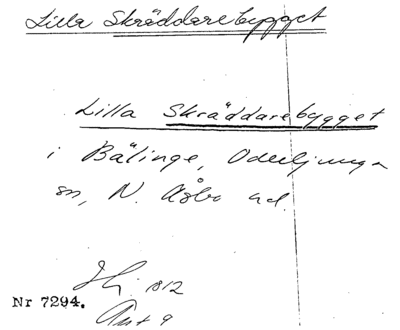 Lilla Skräddarebygget
Lilla Skräddarebygget
i Bälinge, Oderljunga
sn, N. Åsbo hd.
1812
Nr 7294.